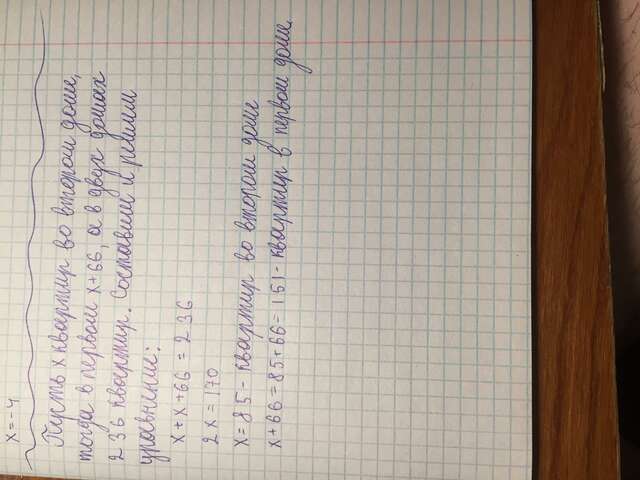 x = -4
Пусть x квартир во втором доме,
тогда в первом x+66, а в двух домах
236 квартир. Составим и решим
уравнение:
x + x + 66 = 236
2x = 170
x = 85 - квартир во втором доме
x + 66 = 85 + 66 = 151 - квартир в первом доме